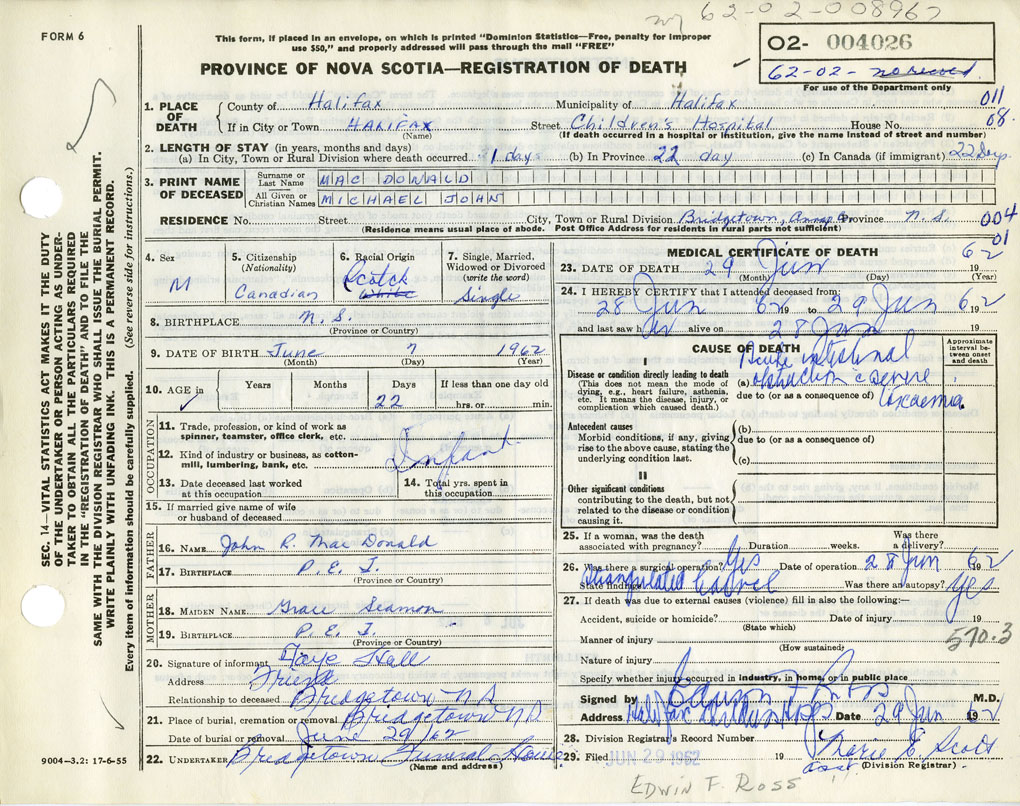 62-02-008967
FORM 6
This form, if placed in an envelope, on which is printed "Dominion Statistics—Free, penalty for improper
use $50," and properly addressed will pass through the mail "FREE"
PROVINCE OF NOVA SCOTIA—REGISTRATION OF DEATH
02- 004026
62-02- no record
For use of the Department only
011
08.
1. PLACE OF DEATH
County of Halifax Municipality of Halifax
If in City or Town HALIFAX Street Children's Hospital House No.
(Name) (If death occurred in a hospital or institution, give the name instead of street and number)
2. LENGTH OF STAY (in years, months and days)
(a) In City, Town or Rural Division where death occurred 1 day (b) In Province 22 day (c) In Canada (if immigrant) 22 days.
3. PRINT NAME OF DECEASED
Surname or Last Name MAC DONALD
All Given or Christian Names MICHAEL JOHN
RESIDENCE No. Street City, Town or Rural Division Bridgetown, Annap Province N.S.
(Residence means usual place of abode. Post Office Address for residents in rural parts not sufficient)
004
01
4. Sex M
5. Citizenship (Nationality) Canadian
6. Racial Origin Scotch white
7. Single, Married, Widowed or Divorced (write the word) Single
8. BIRTHPLACE N.S.
(Province or Country)
9. DATE OF BIRTH June 7 1962
(Month) (Day) (Year)
10. AGE in Years Months Days If less than one day old
22 hrs. or min.
OCCUPATION
11. Trade, profession, or kind of work as spinner, teamster, office clerk, etc.
12. Kind of industry or business, as cotton-mill, lumbering, bank, etc.
Infant
13. Date deceased last worked at this occupation
14. Total yrs. spent in this occupation
15. If married give name of wife or husband of deceased
FATHER
16. NAME John R. MacDonald
17. BIRTHPLACE P.E.I.
(Province or Country)
MOTHER
18. MAIDEN NAME Grace Seamon
19. BIRTHPLACE P.E.I.
(Province or Country)
20. Signature of informant Faye Hall
Address Friend
Relationship to deceased Bridgetown NS
21. Place of burial, cremation or removal Bridgetown NS
Date of burial or removal June 29/62
22. UNDERTAKER Bridgetown Funeral House
(Name and address)
MEDICAL CERTIFICATE OF DEATH
23. DATE OF DEATH 29 Jun 62 19
(Month) (Day) (Year)
24. I HEREBY CERTIFY that I attended deceased from:
28 Jun 62 19 to 29 Jun 62 19
and last saw h im alive on 28 Jun 19
CAUSE OF DEATH
Approximate interval between onset and death
I
Disease or condition directly leading to death
(This does not mean the mode of dying, e.g., heart failure, asthenia, etc. It means the disease, injury, or complication which caused death.)
(a) Acute intestinal obstruction c severe toxaemia
due to (or as a consequence of)
Antecedent causes
Morbid conditions, if any, giving rise to the above cause, stating the underlying condition last.
(b)
due to (or as a consequence of)
(c)
II
Other significant conditions
contributing to the death, but not related to the disease or condition causing it.
25. If a woman, was the death associated with pregnancy? Duration weeks. Was there a delivery?
26. Was there a surgical operation? Yes Date of operation 28 Jun 62 19
State findings Strangulated bowel Was there an autopsy? Yes
27. If death was due to external causes (violence) fill in also the following:—
Accident, suicide or homicide? Date of injury 19
(State which)
570.3
Manner of injury
(How sustained)
Nature of injury
Specify whether injury occurred in industry, in home, or in public place
Signed by Edwin F Ross M.D.
Address Halifax Childrens Hosp Date 29 Jun 62 19
28. Division Registrar's Record Number
29. Filed JUN 29 1962 19 Marie E. Scott
asst. (Division Registrar)
EDWIN F. ROSS
SEC. 14—VITAL STATISTICS ACT MAKES IT THE DUTY
OF THE UNDERTAKER OR PERSON ACTING AS UNDER-
TAKER TO OBTAIN ALL THE PARTICULARS REQUIRED
IN THE "REGISTRATION OF DEATH" AND TO FILE THE
SAME WITH THE DIVISION REGISTRAR WHO SHALL ISSUE THE BURIAL PERMIT.
WRITE PLAINLY WITH UNFADING INK. THIS IS A PERMANENT RECORD.
Every item of information should be carefully supplied. (See reverse side for instructions.)
9004-3.2: 17-6-55